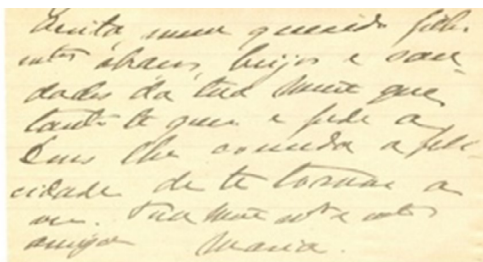 Anita, meu querido filho
mtos abraços, beijos e sau
dades da tua Mãe que
tanto te quer e pede a
Deus lhe conceda a feli-
cidade de te tornar a
ver. Tua Mãe mto e mto
amiga Maria.